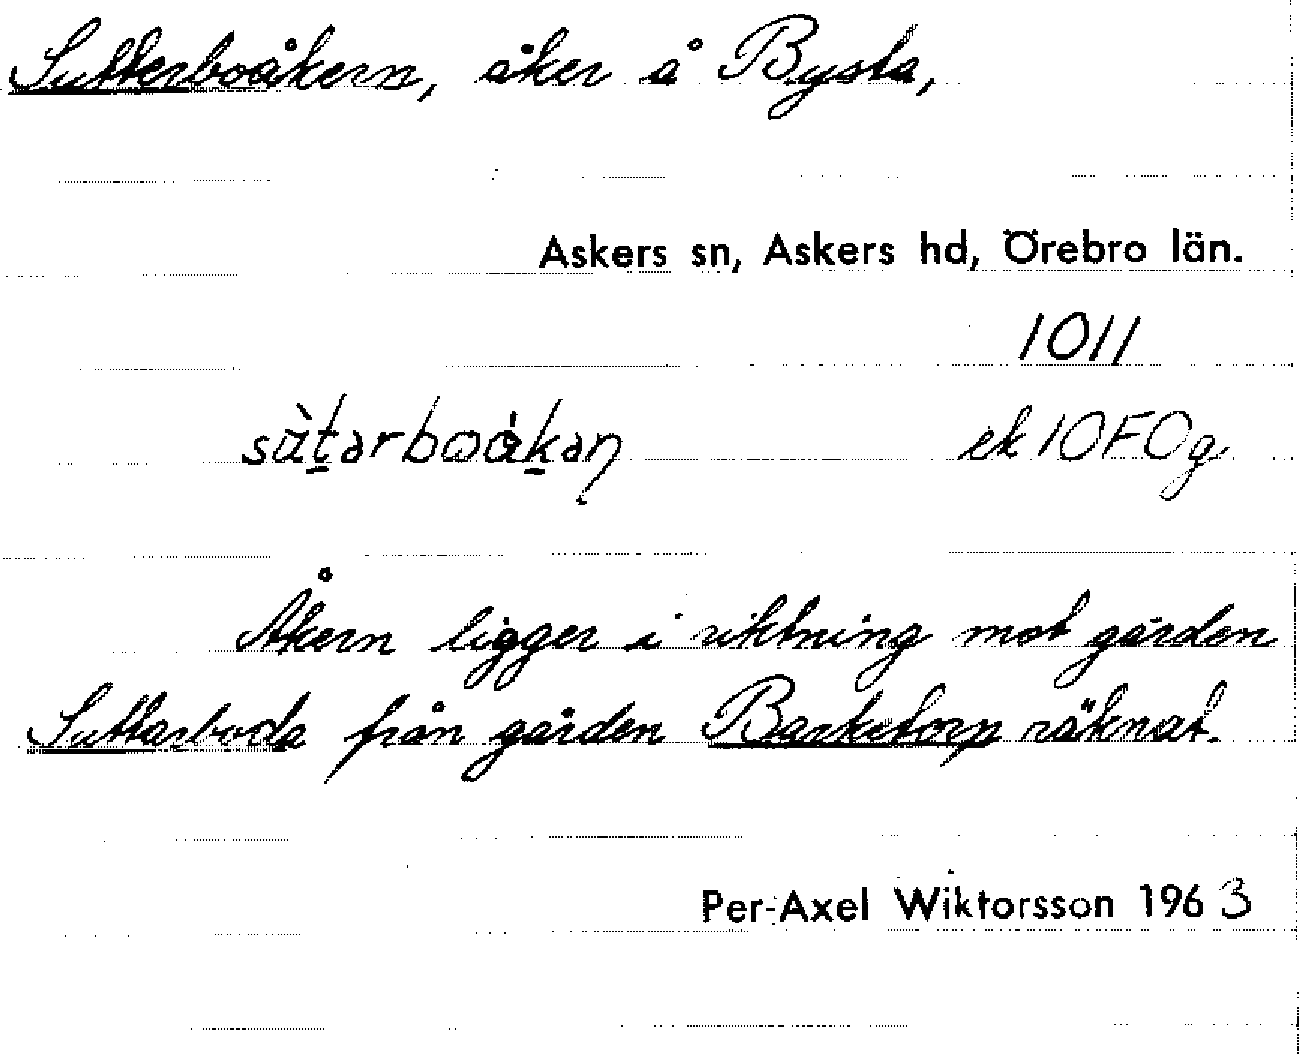 Sutterboåkern, åker å Bysta,
Askers sn, Askers hd, Örebro län.
1011
sùtarboåkaɳ ek 10F0g
Åkern ligger i riktning mot gården
Suttarboda från gården Barketorp räknat.
Per-Axel Wiktorsson 1963